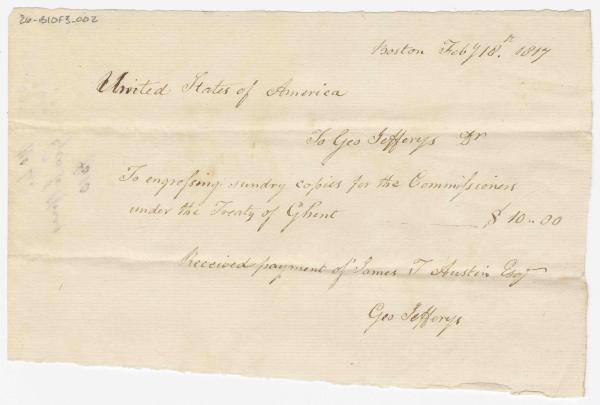 26-B10F3-002
Boston Feby 18th. 1817
United States of America
To Geo Jefferys Dr
To engrossing sundry copies for the Commissioners
under the Treaty of Ghent $ 10..00
Received payment of James T Austin Esqr
Geo Jefferys